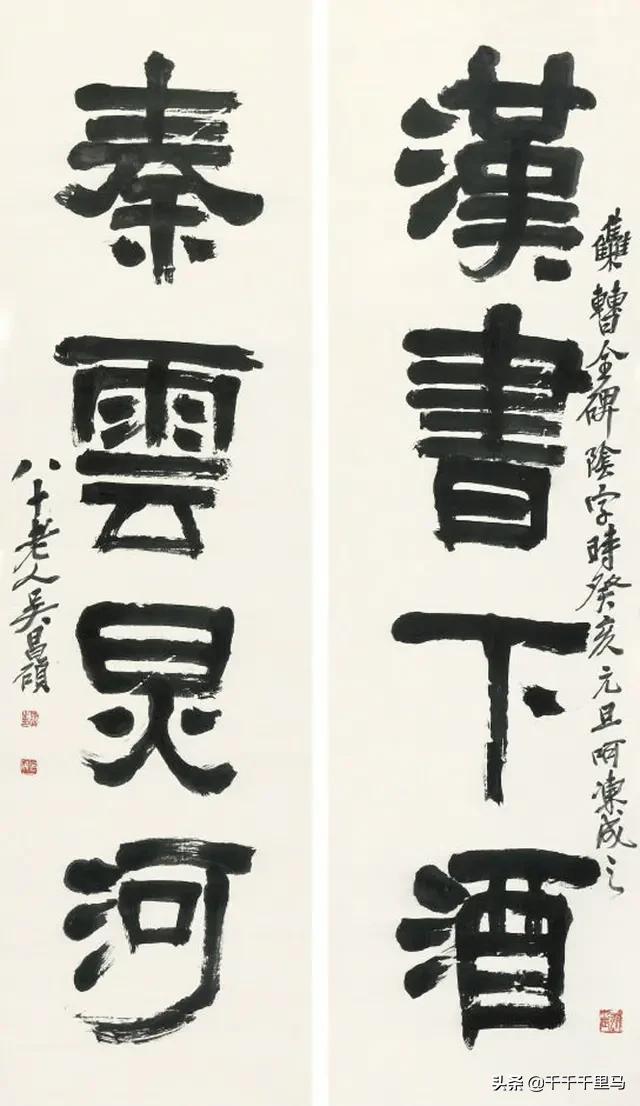 漢書下酒
雧曹全碑陰字時癸亥元旦呵凍成之
秦雲炅河
八十老人吳昌碩
头条 @千千千里马